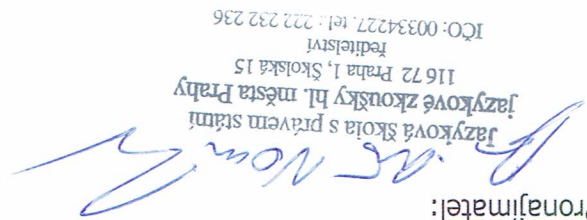 ronajímatel:
Jazyková škola s právem státní
jazykové zkoušky hl. města Prahy
116 72 Praha 1, Školská 15
ředitelství
IČO: 00334227. tel.: 222 232 236